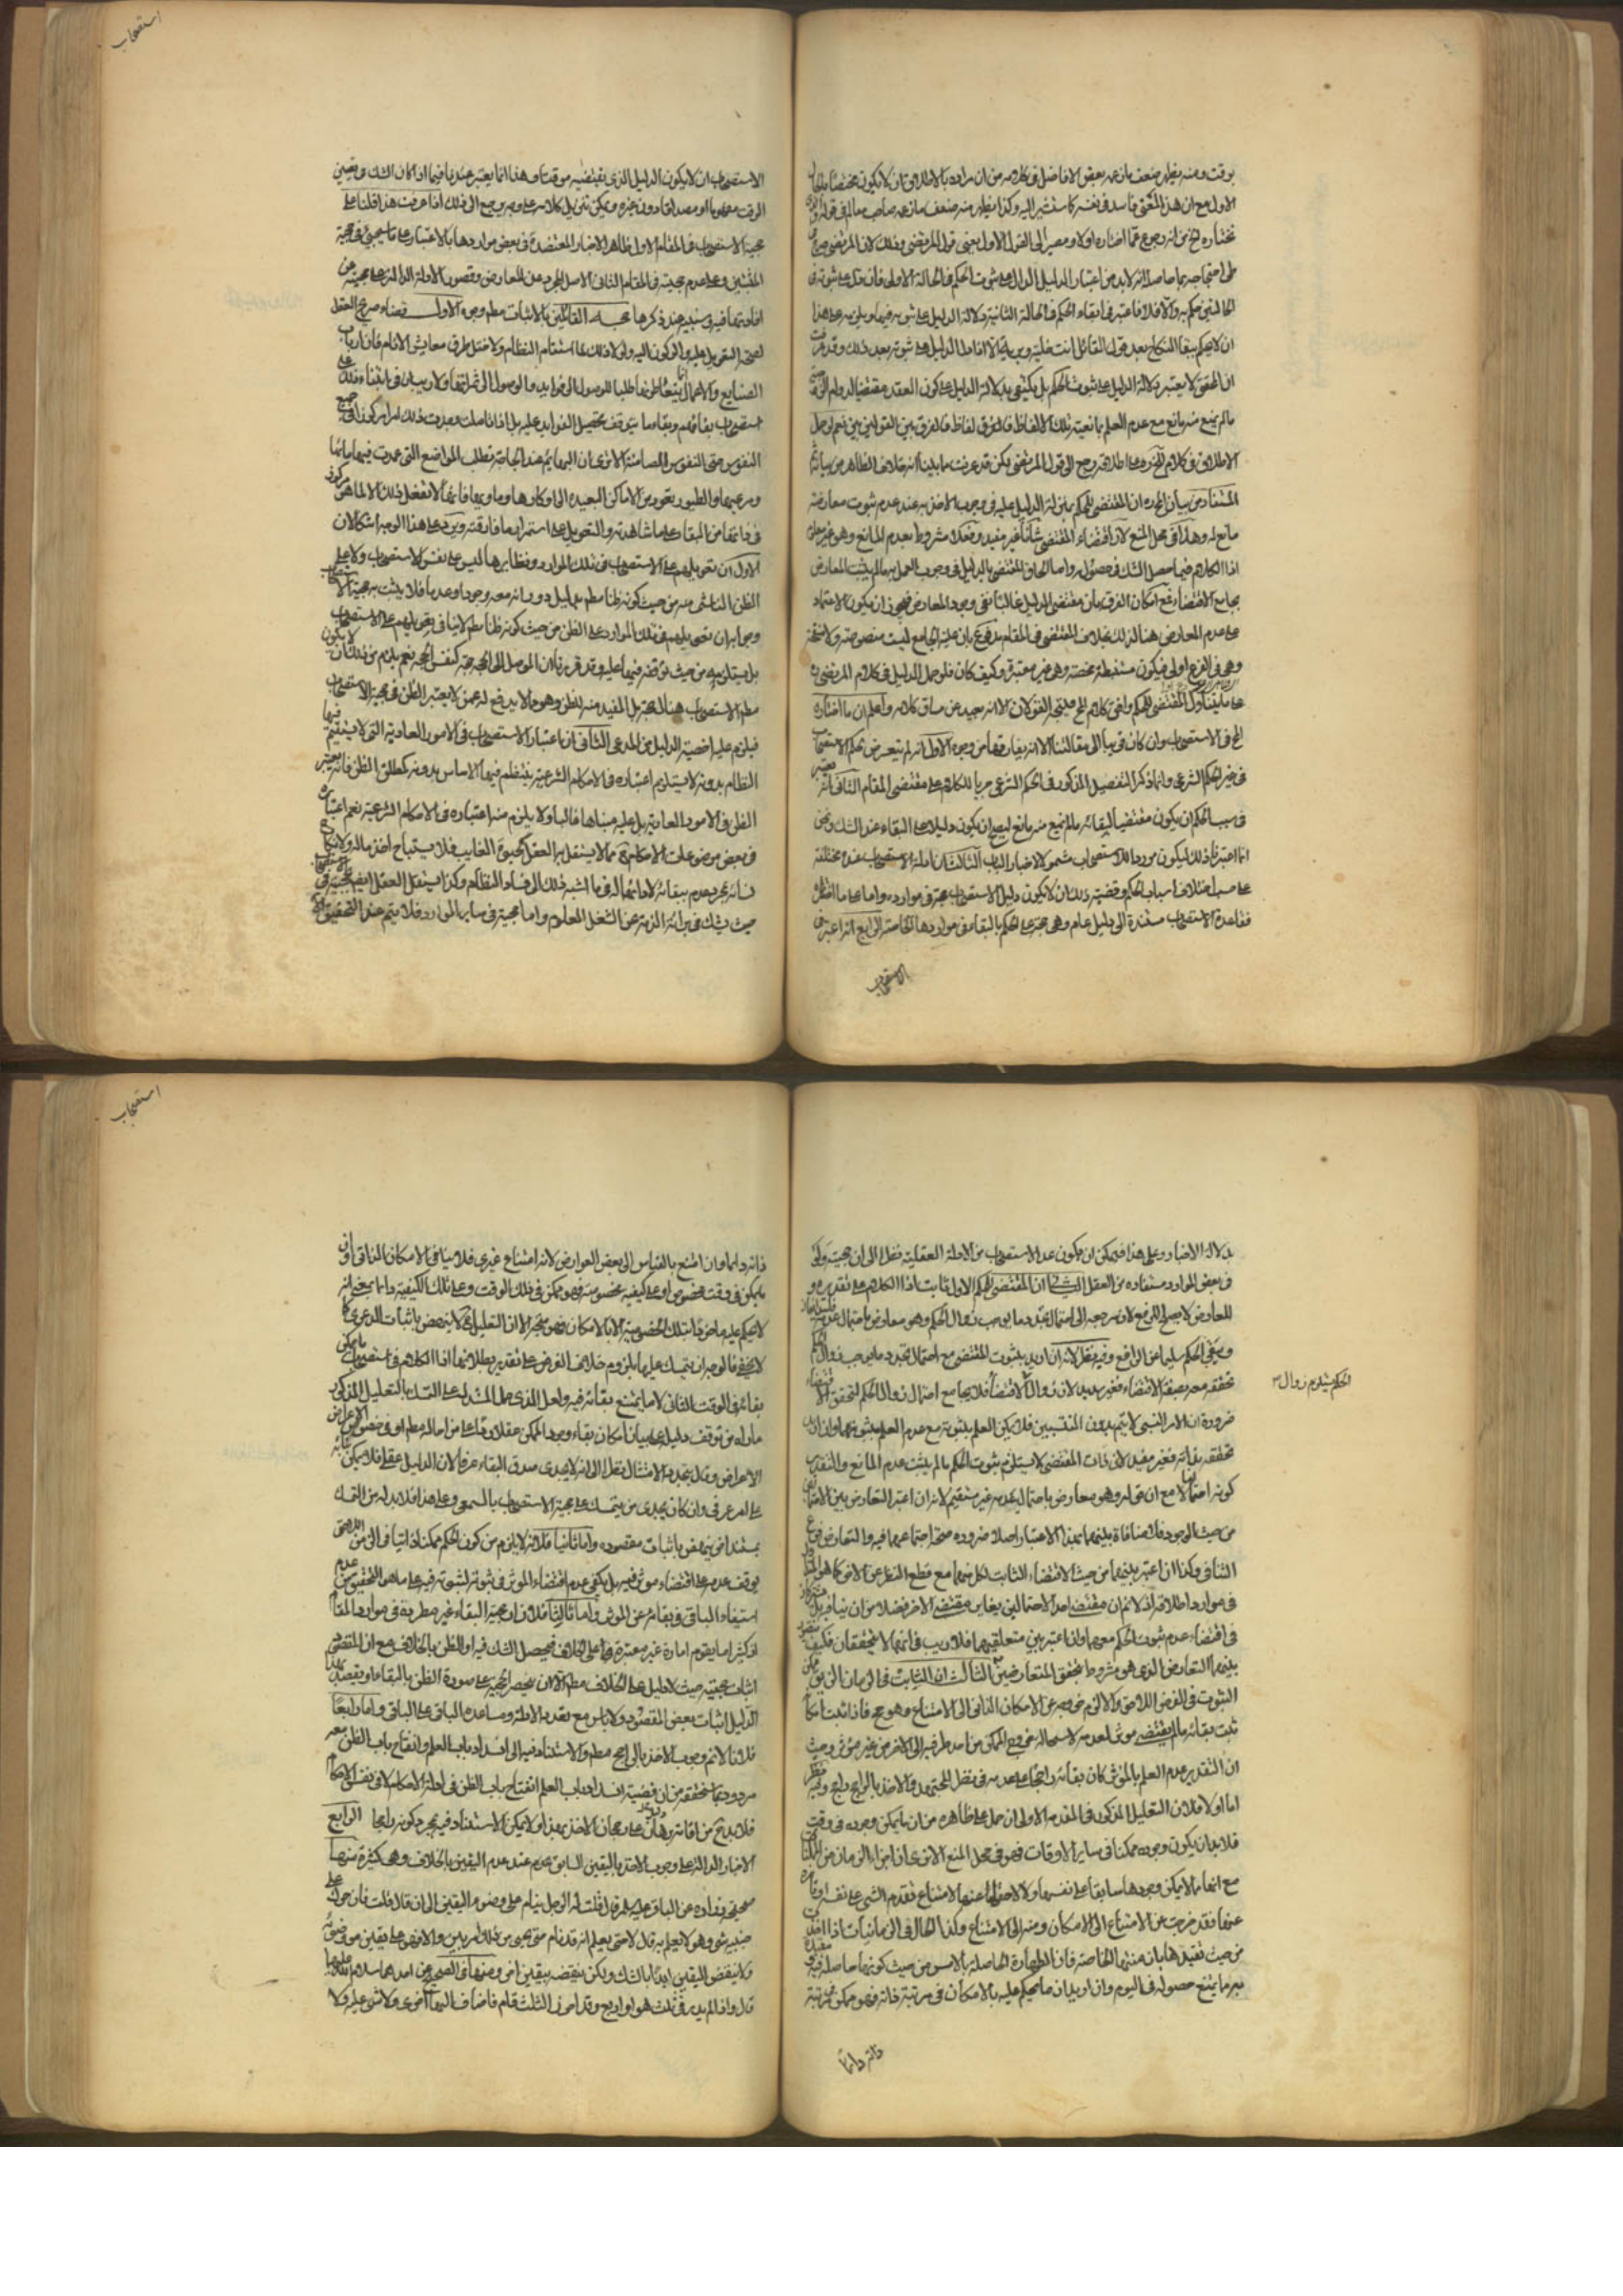 بوقت ومنه يظهر ضعف ما زعمه بعض الافاضل في كلامه من ان مراده بالاطلاق ان لا يكون مختصا بالحال
الاول مع ان هذا المعنى فاسد في نفسه كما سنشير اليه وكذا يظهر منه ضعف ما زعمه صاحب المعالم في قوله
نختاره الخ من انه رجوع عما اختاره اولا ومصير الى القول الاول يعنى قول المرتضى وذلك لان المرتضى صرح
في احتجاجه بما حاصله انه لابد من اعتبار الدليل الدال على ثبوت الحكم في الحالة الاولى فان دل على ثبوته في
الحالتين حكم به والا فلا فاعتبر في ابقاء الحكم في الحالة الثانية دلالة الدليل على ثبوته فيها ويلزمه على هذا
ان لا يحكم ببقاء النكاح بعد قول القائل انت خلية وبرية الا اذا دل الدليل على ثبوته بعد ذلك وقد عرفت
ان المحقق لا يعتبر دلالة الدليل على ثبوت الحكم بل يكتفى بدلالة الدليل على كون العقد مقتضيا لدوام
مالم يمنع منه مانع مع عدم العلم بمانعية تلك الالفاظ فالفرق بين القولين بين نعم لو حمل
الاطلاق في كلام المحقق على اطلاقه رجع الى قول المرتضى لكن قد عرفت ما بينا انه خلاف الظاهر من بيانه
المستفاد من بيان المحقق ان المقتضى للحكم بمنزلة الدليل عليه في وجوب الاخذ به عند عدم ثبوت معارضه
مانع له وهذا في محل المنع لان اقتضاء المقتضى شأنا غير مفيد وفعلا مشروط بعدم المانع وهو غير معلوم
اذا الكلام فيما حصل الشك في حصوله واما الحاق المقتضى بالدليل في وجوب العمل به مالم يثبت المعارض
بجامع الاقتضاء فمع امكان الفرق بان مقتضى الدليل غالبا نفى وجود المعارض فيجوز ان يكون الاعتماد
على عدم المعارض هناك لذلك بخلاف المقتضى في المقام مدفوع بان علية الجامع ليست منصوصة ولا منقحة
وهي في الفرع اولى فيكون مستنبطة محضة وهي غير معتبرة وكيف كان فلو حمل الدليل في كلام المرتضى
على ما يتناول المقتضى للحكم وافق كلام المحقق فيتحد القولان الا انه بعيد عن مساق كلامه واعلم ان ما اختاره
المحقق في الاستصحاب وان كان قريبا الى مقالتنا الا انه يفارقها من وجوه الاول انه لم يتعرض لحكم الاستصحاب
في غير الحكم الشرعي وانما ذكر التفصيل المذكور في الحكم الشرعي جريا للكلام على مقتضى المقام الثاني انه يعتبر
في سبب الحكم ان يكون مقتضيا لبقائه مالم يمنع منه مانع ليصح ان يكون دليلا على البقاء عند الشك ونحن
انما اعتبرنا ذلك ليكون موردا للاستصحاب شمول الاخبار الباب الثالث ان ادلة الاستصحاب عنده مختلفة
على حسب اختلاف اسباب الحكم وقضية ذلك ان لا يكون دليل الاستصحاب حجة في موارده واما على ما اخترناه
فقاعدة الاستصحاب مستندة الى دليل عام وهي حجة على الحكم بالبقاء في مواردها الخاصة الرابع انه اعتبر في
الاستصحاب
استصحاب
الاستصحاب ان لا يكون الدليل الذي يقتضيه موقتا وهذا انما يعتبر عندنا فيما اذا كان الشك في تعيين
الوقت مفهوما او مصداقا دون غيره ويمكن تنزيل كلامه على وجه يرجع الى ذلك اذا عرفت هذا فلنا على
حجية الاستصحاب في المقام الاول ظاهر الاخبار المعتضدة في بعض مواردها بالاعتبار على ما سيجئ في حجة
المثبتين وعلى عدم حجيته في المقام الثاني الاصل المجرد عن المعارض وقصور الادلة الدالة على حجيته عن
افادتها فيه وسنبينه عند ذكرها حجة القائلين بالاثبات مطم وجوه الاول قضاء صريح العقل
لصحة التعويل عليه والركون اليه ولولا ذلك لما استقام النظام ولاختل طرق معايش الانام فان ارباب
الصنايع والاعمال انما يتعاطونها طلبا للوصول الى فوايدها والوصول الى ثمراتها ولا ريب ان في ابتناء ذلك على
استصحاب بقائهم وبقاء ما يتوقف تحصيل الفوايد عليه بل اذا تاملت وجدت ذلك امرا مركوزا في جميع
النفوس حتى النفوس الصامتة الا ترى ان البهائم عند الحاجة تطلب المواضع التى عهدت فيها ماءها
ومرعيها والطيور تعود من الاماكن البعيدة الى اوكارها وماويها فانها لا تفعل ذلك الا لما هو مركوز
في ذاتها من البقاء على ما شاهدته والتعويل على استمرار ما فارقته ويرد على هذا الوجه اشكالان
الاول ان تعويلهم على الاستصحاب في تلك الموارد ونظايرها ليس على نفس الاستصحاب ولا على
الظن الناشى منه من حيث كونه ظنا مطم بدليل دورانه معه وجودا وعدما فلا يثبت به حجية الاستصحاب
وجوابه ان تعويلهم في تلك الموارد على الظن من حيث كونه ظنا مطم لا ينافى تعويلهم على الاستصحاب
بل يستلزمه من حيث توقفه فيها عليه وقد قررنا ان الموصل الى الحجة حجة كنفس الحجة نعم يلزم من ذلك ان لا يكون
مطم الاستصحاب هناك حجة بل المفيد منه للظن وهو مما لا يدفع له عمن لا يعتبر الظن في حجية الاستصحاب
فيلزم عليه اخصية الدليل من المدعى الثاني ان اعتبار الاستصحاب في الامور العادية التى لا يستقيم فيها
النظام بدونه لا يستلزم اعتباره في الاحكام الشرعية ينتظم فيها الاساس بدونه كمطلق الظن فانه معتبر
الظن في الامور العادية بل عليه مبناها غالبا ولا يلزم منه اعتباره في الاحكام الشرعية نعم اعتباره
في بعض موضوعات الاحكام مما لا يستقل به العقل كحيوة الغايب فلا يستباح اخذ ماله ولا نكاح
نسائه بمجرد عدم بقائه لادائها الى ما اشبه ذلك الى فساد النظام وكذا يستقل العقل ايضا بحجيته في
حيث يشك في برائة الذمة عن الشغل المعلوم واما حجيته في ساير الموارد فلا يتم عند التحقيق الا
بدلالة الاخبار وعلى هذا فيمكن ان يكون عد الاستصحاب من الادلة العقلية نظرا الى ان حجيته ولو
في بعض الموارد مستفاده من العقل الثاني ان المقتضى للحكم الاول ثابت اذ الكلام على تقديره و
المعارض لا يصلح للدفع لان مرجعه الى احتمال تجدد ما يوجب زوال الحكم وهو معارض باحتمال عدمه فيتساقطان
ويبقى الحكم سليما عن الرافع وفيه نظر لانه ان اريد بثبوت المقتضى مع احتمال تجدد ما يوجب زوال الحكم
تحققه معه بصفة الاقتضاء فغير سديد لان زوال الاقتضاء فلا يجامع احتمال زوال الحكم لتحقق الاقتضاء
الحكم يستلزم زوال
ضرورة ان الامر النسبى لا يتم بدون المنتسبين فلا يكن العلم بثبوته مع عدم العلم بثبوتهما وان اريد
تحققه بذاته فغير مفيد لان ذات المقتضى لا يستلزم ثبوت الحكم مالم يثبت عدم المانع والتقدير
كونه احتمالا مع ان قوله وهو معارض باحتمال عدمه غير مستقيم لانه ان اعتبر التعارض بين الاحتمالين
من حيث الوجود فلا منافاة بينهما بهذا الاعتبار اصلا ضرورة صحة اجتماعهما فيه والتعارض فرع
التنافى وكذا ان اعتبر بينهما من حيث الاقتضاء الثابت لكل منهما مع قطع النظر عن الاخر كما هو
في موارد اطلاقه اذ لا نم ان مقتضى احد الاحتمالين يغاير مقتضى الاخر فضلا من ان ينافيه بل
في اقتضاء عدم ثبوت الحكم معهما واذا اعتبر بين متعلقيهما فلا ريب في انهما لا يتحققان فكيف
بينهما التعارض الذي هو مشروط بتحقق المتعارضين الثالث ان الثابت في الزمان الاول ممكن
الثبوت في الفرض الثانى والا لزم خروجه عن الامكان الذاتى الى الامتناع وهو مح فاذا ثبت امكانه
ثبت بقائه مالم يقتضى موثر لعدمه لاستحالة خروج الممكن من احد طرفيه الى الاخر من غير مؤثر وحيث
ان التقدير عدم العلم بالموثر كان بقائه راجحا على عدمه في نظر المجتهد والاخذ بالراجح واجب وفيه نظر
اما اولا فلان التعليل المذكور في المقدمة الاولى ان حمل على ظاهره من ان ما يمكن وجوده في وقت
فلابد ان يكون وجوده ممكنا في ساير الاوقات فهو في محل المنع الا ترى ان اجزاء الزمان من الممكنات
مع انها مما لا يمكن وجودها سابقا على نفسها ولا لاحقا عنها لامتناع تقدم الشئ على نفسه او تاخره
عنها فقد خرجت عن الامتناع الى الامكان ومنه الى الامتناع وكذا الحال في الزمانيات اذا اخذت
من حيث تقيدها بازمنتها الخاصة فان الطهارة الحاصلة بالامس من حيث كونها حاصلة فيه ومقيدة
به مما يمتنع حصوله في اليوم وان اريد ان ما يحكم عليه بالامكان في مرتبة ذاته فهو ممكن في مرتبة
ذاته دائما
استصحاب
ذاته دائما وان امتنع بالقياس الى بعض العوارض لانه امتناع غيرى فلا ينافى الامكان الذاتى او ان
ما يمكن في وقت مخصوص او على كيفية مخصوصة فهو ممكن في ذلك الوقت وعلى تلك الكيفية دائما بمعنى انه
لا يحكم عليه ماخوذا بتلك الخصوصية الا بالامكان فهو متجه الا ان التعليل به لا ينهض باثبات الدعوى كما
لا يخفى فالوجه ان يتمسك عليها بلزوم خلاف الفرض على تقدير بطلانها اذ الكلام في استصحاب ما يمكن
بقائه في الوقت الثاني لا ما يمتنع بقائه فيه ولعل الذي حمل المستدل على التمسك بالتعليل المذكور
ما راه من توقف دليله على بيان امكان بقاء وجود الممكن عقلا ردا على من احاله مطم او في خصوص الاعراض
الاعراض وقال بتجدد الامثال نظرا الى انه لا يجدى صدق البقاء عرفا لان الدليل عقلى فلا يمكن بنائه
على امر عرفى وان كان يجدى من يتمسك على حجية الاستصحاب بالسمعى وعلى هذا فلابد له من التمسك
بمستند اخر ينهض باثبات مقصوده واما ثانيا فلانه لا يلزم من كون الحكم ممكنا ذاتيا في الزمن اللاحق
توقف عدمه على اقتضاء موثر فيه بل يكفى عدم اقتضاء الموثر في ثبوته لثبوته فيه على ما هو التحقيق من عدم
استغناء الباقى في بقائه عن الموثر واما ثالثا فلان حجية البقاء غير مطردة في موارد المقام
اذ كثيرا ما يقوم امارة غير معتبرة على الخلاف فيحصل الشك فيه او الظن بالخلاف مع ان المقصود
اثبات حجيته حيث لا دليل على الخلاف مطم الا ان يخصص الحجية على صورة الظن بالبقاء او يقصد بهذا
الدليل اثبات بعض المقصود ولا باس مع تعدد الادلة ومساعدة الباقى على الباقى واما رابعا
فلانا لا نم وجوب الاخذ بالراجح مطم والاستناد فيه الى انسداد باب العلم وانفتاح باب الظن معه
مردود بما نحققه من ان قضية انسداد باب العلم انفتاح باب الظن في ادلة الاحكام لا في نفس الاحكام
فلابد مع من اقامة برهان على رجحان الاخذ بهذا ولا يمكن الاستناد فيه بمجرد كونه راجحا الرابع
الاخبار الدالة على وجوب الاخذ باليقين السابق وعدم نقضه عند عدم اليقين بالخلاف وهى كثيرة منها
صحيحة زراره عن الباقر عليه السلام قال قلت له الرجل ينام على وضوء اليقين الى ان قال قلت فان حرك على
جنبه شئ وهو لا يعلم به قال لا حتى يعلم انه قد نام حتى يجئ من ذلك امر بين والا فهو على يقين من وضوئه
ولا ينقض اليقين ابدا بالشك ولكن ينقضه بيقين اخر ومنها في الصحيح عن احدهما عليهما السلام
قال واذا لم يدر في ثلث هو او اربع وقد احرز الثلث قام فاضاف اليها اخرى ولا شئ عليه ولا